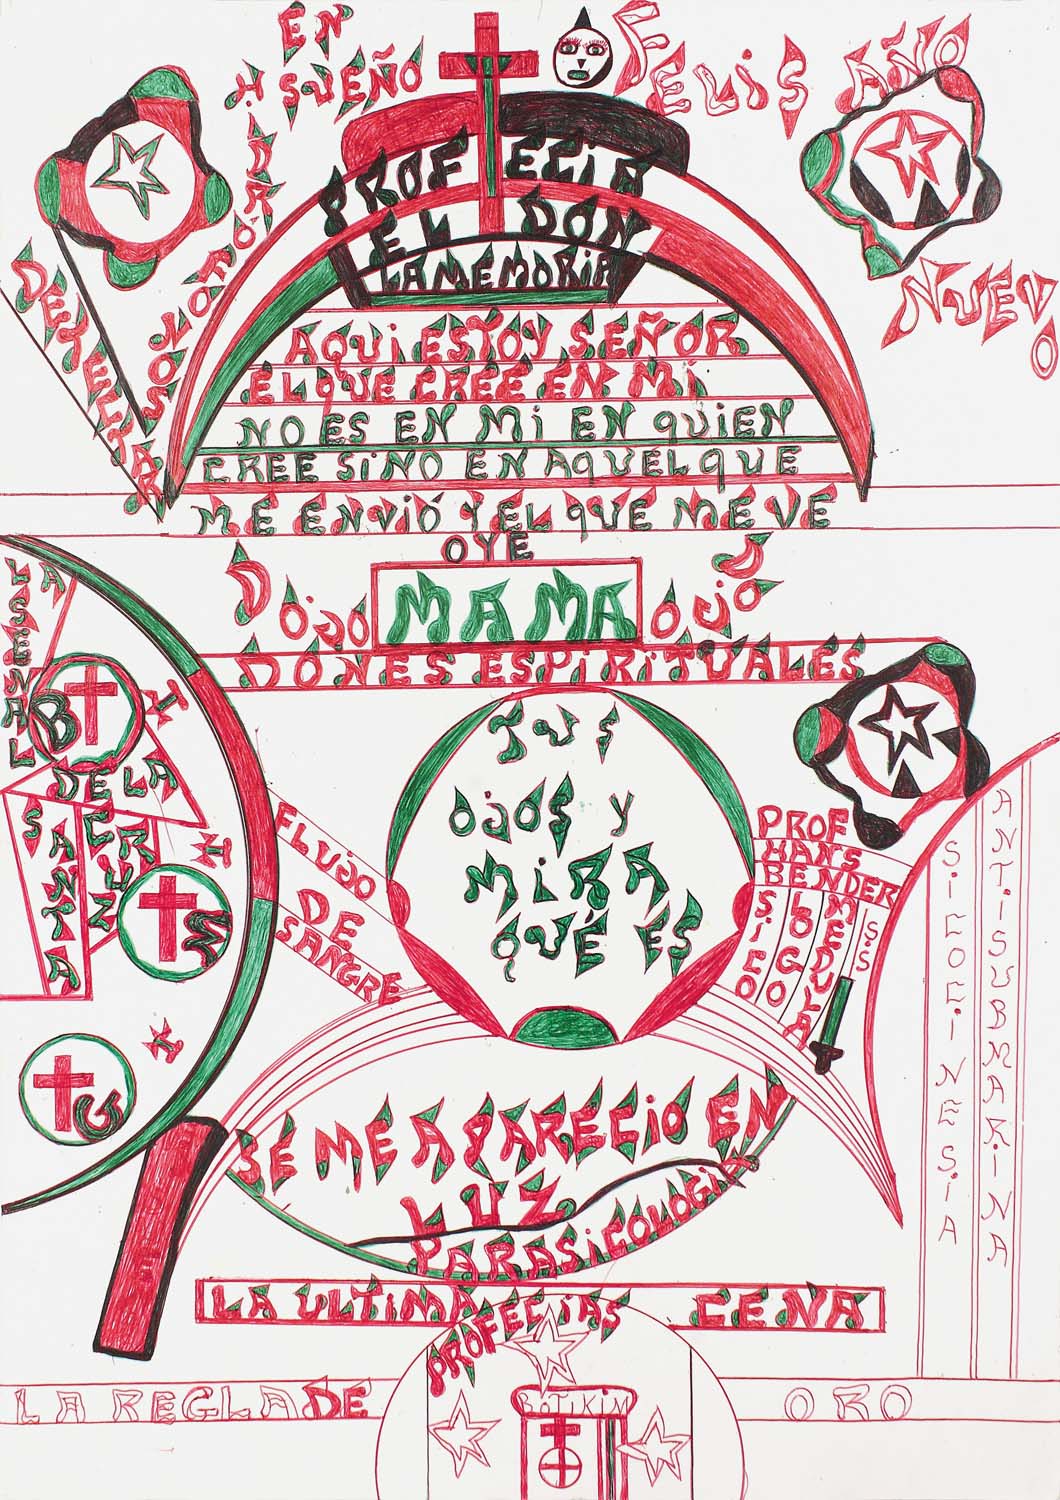 EN
SUEÑO
FELIS AÑO
NUEVO
HIDRÓ
DETECTAR
PROFECIA
EL DON
LA MEMORIA
AQUI ESTOY SEÑOR
EL QUE CREE EN MI
NO ES EN MI EN QUIEN
CREE SINO EN AQUEL QUE
ME ENVIÓ Y EL QUE ME VE
OYE
D
OJO
MAMA
OJO
D
DONES ESPIRITUALES
LA SEÑAL
B
H
DE LA
SANTA
CRUZ
H
M
H
G
TUS
OJOS Y
MIRA
QUÉ ES
FLUJO
DE
SANGRE
PROF
HANS
BENDER
SICOLOGO
MEDULA
S.S
SICOCINESIA
ANTISUBMARINA
SE ME APARECIO EN
LUZ
PARASICOLOGIA
LA ULTIMA CENA
PROFECIAS
LA REGLA DE ORO
BOTIKIM